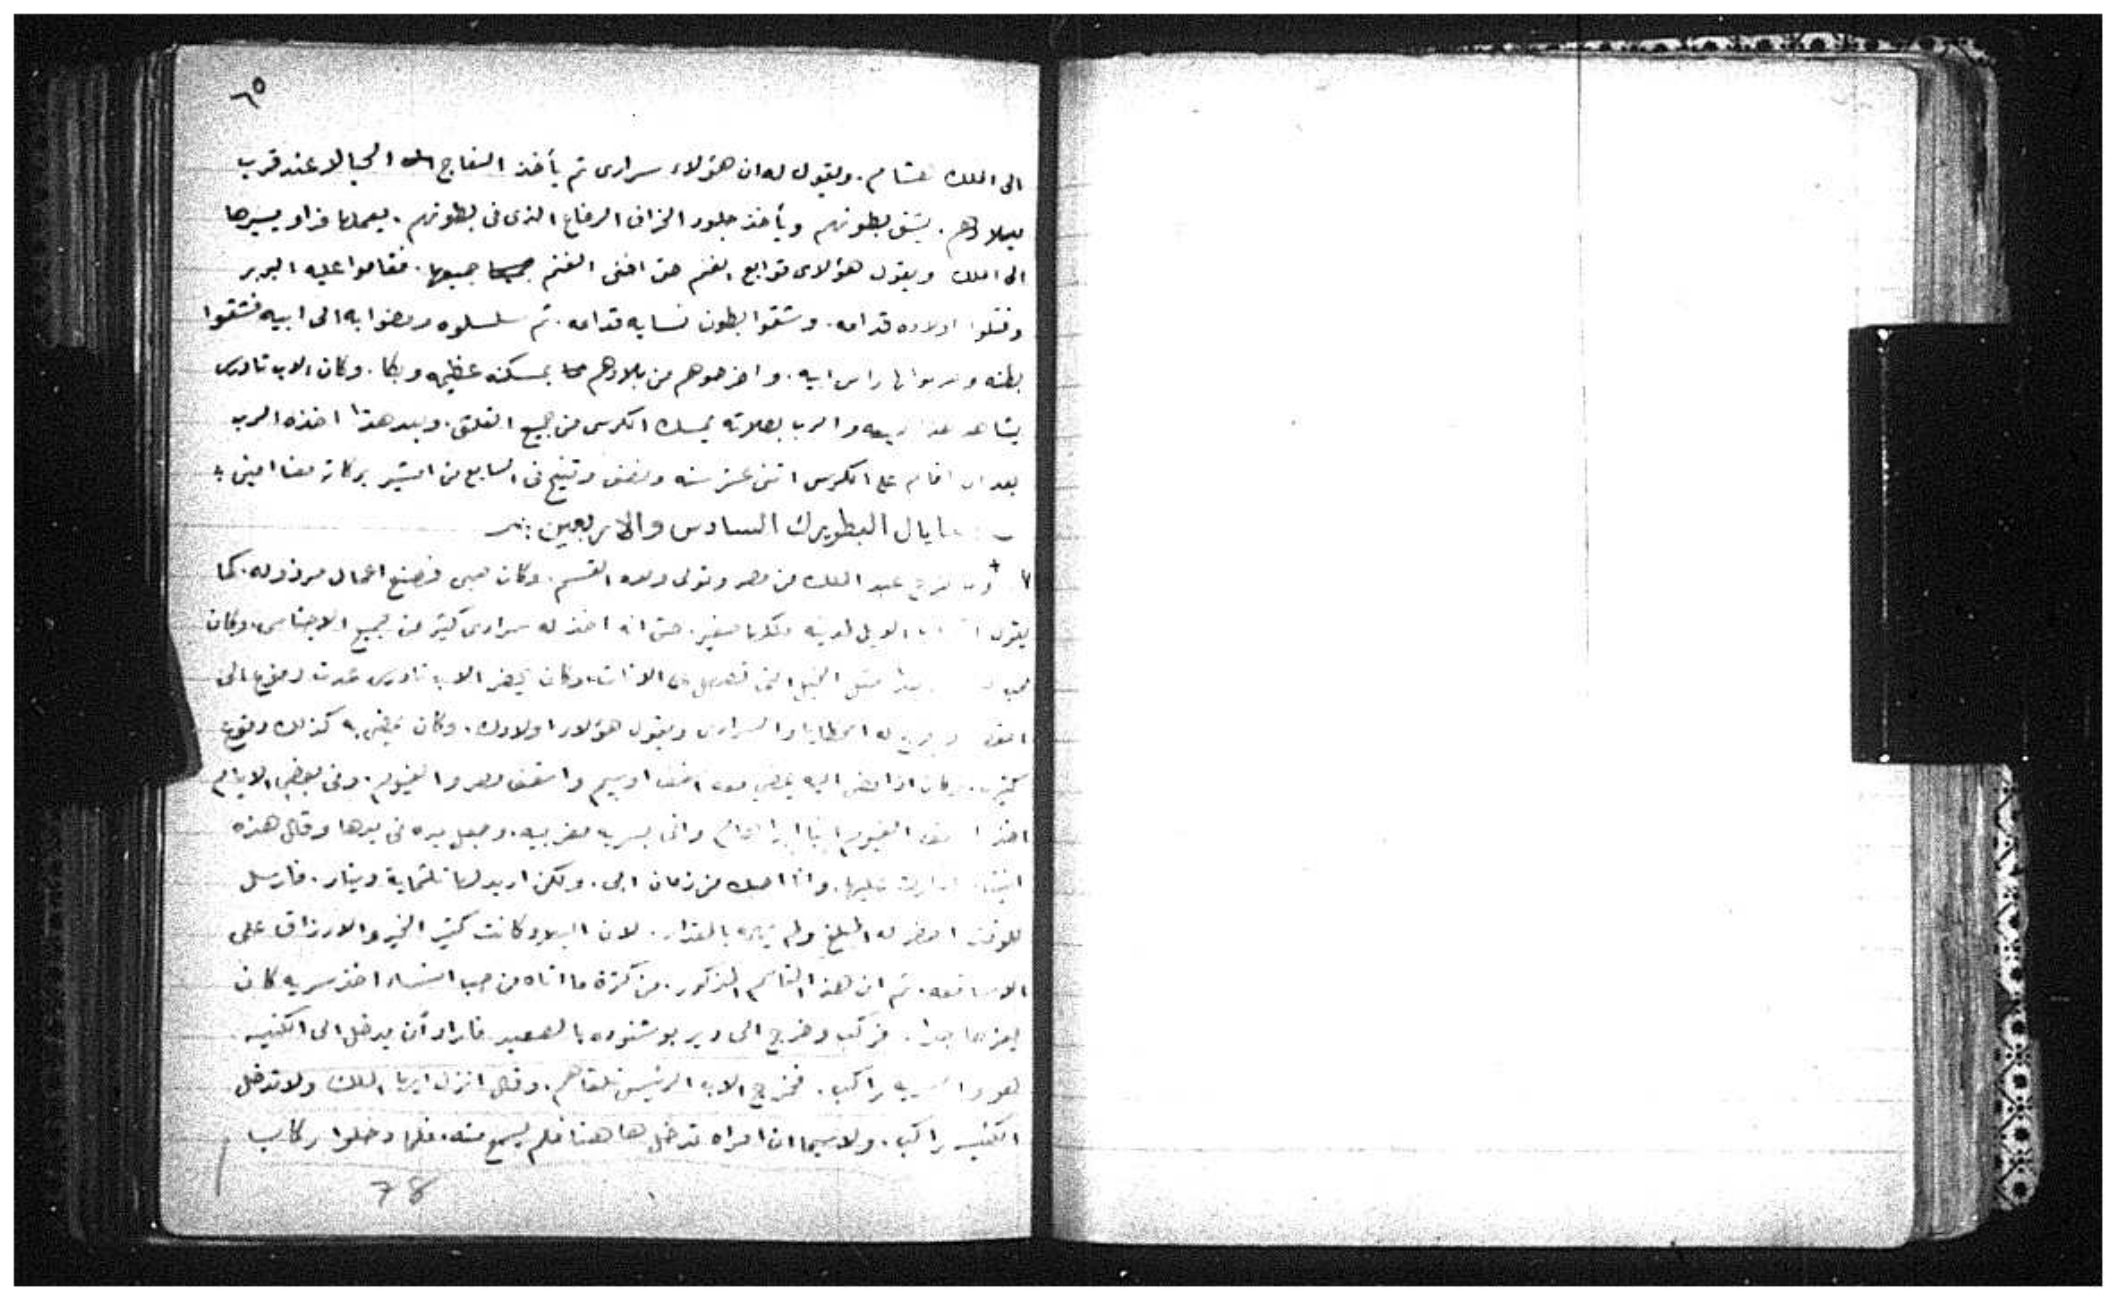 ٦٥
الى الملك هشام. ويقول له ان هؤلاء سرارى ثم يأخذ النعاج الحبالا عند قرب
بيلادهم. يشق بطونهم ويأخذ جلود الخراف الرضاع الذى فى بطونهم. يعملها فرا ويسيرها
الى الملك ويقول هؤلاى توابع الغنم حتى افنى الغنم جميعها. فقاموا عليه البربر
وقتلوا اولاده قدامه. وشقوا بطون نسايه قدامه. ثم سلسلوه ومضوا به الى ابيه فشقوا
بطنه وضربوا بها راس ابيه. واخرجوهم من بلادهم بمسكنه عظيمه وبكا. وكان الاب تادرس
يشاهد هذا جميعه والرب بصلاته يمسك الكرسى من جميع القلق. وبعد هذا اخذه الرب
بعد ان اقام على الكرسى اثنى عشر سنه ونصف وتنيح فى السابع من امشير بركاته معنا امين
خايال البطريرك السادس والاربعين
عبد الملك من مصر وتولى ولده القسم. وكان صبى فصنع اعمال مرذوله. كما
يقول الويل لمدينه ملكها صغير. حتى انه اخذ له سرارى كثير من جميع الاجناس. وكان
جدا مثل الخيل التى تصهل على الاناث. وكان يحضر الاب تادرس عدت دفوع الى
له الحظايا والسرارى ويقول هؤلاء اولادك. وكان يمضى به كذلك دفوع
كثيره. وكان اذا مضى اليه يمضى معه اسقف اوسيم واسقف مصر والفيوم. وفى بعض الايام
اخذ اسقف الفيوم انبا ابراهام واتى بسريه مغربيه. وجعل يده فى يدها وقال هذه
وانا احبك من زمان ابى. ولكن اريد لها ثلثماية دينار. فارسل
للوقت احضر له المبلغ ولم يهمه بالمقدار. لان البلاد كانت كثير الخير والارزاق على
الاساقفه. ثم ان هذا القاسم المذكور. من كثرة ما اتاه من حب النساء اخذ سريه كان
يعزها جدا. فركب وخرج الى دير بوشنوده بالصعيد فاراد أن يدخل الى الكنيسه.
هو والسريه راكب. فخرج الاب الريس تلقاهم. وقال انزل ايها الملك ولا تدخل
الكنيسه راكب. ولا سيما ان امراه تدخل هاهنا فلم يسمع منه. فلما دخلوا ركاب
78